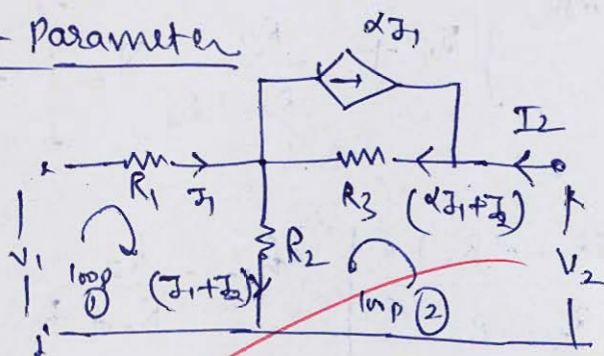 - Parameter
αI₁
I₂
R₁ I₁ R₃ (αI₁+I₂)
V₁ loop ① (I₁+I₂) R₂ loop ② V₂